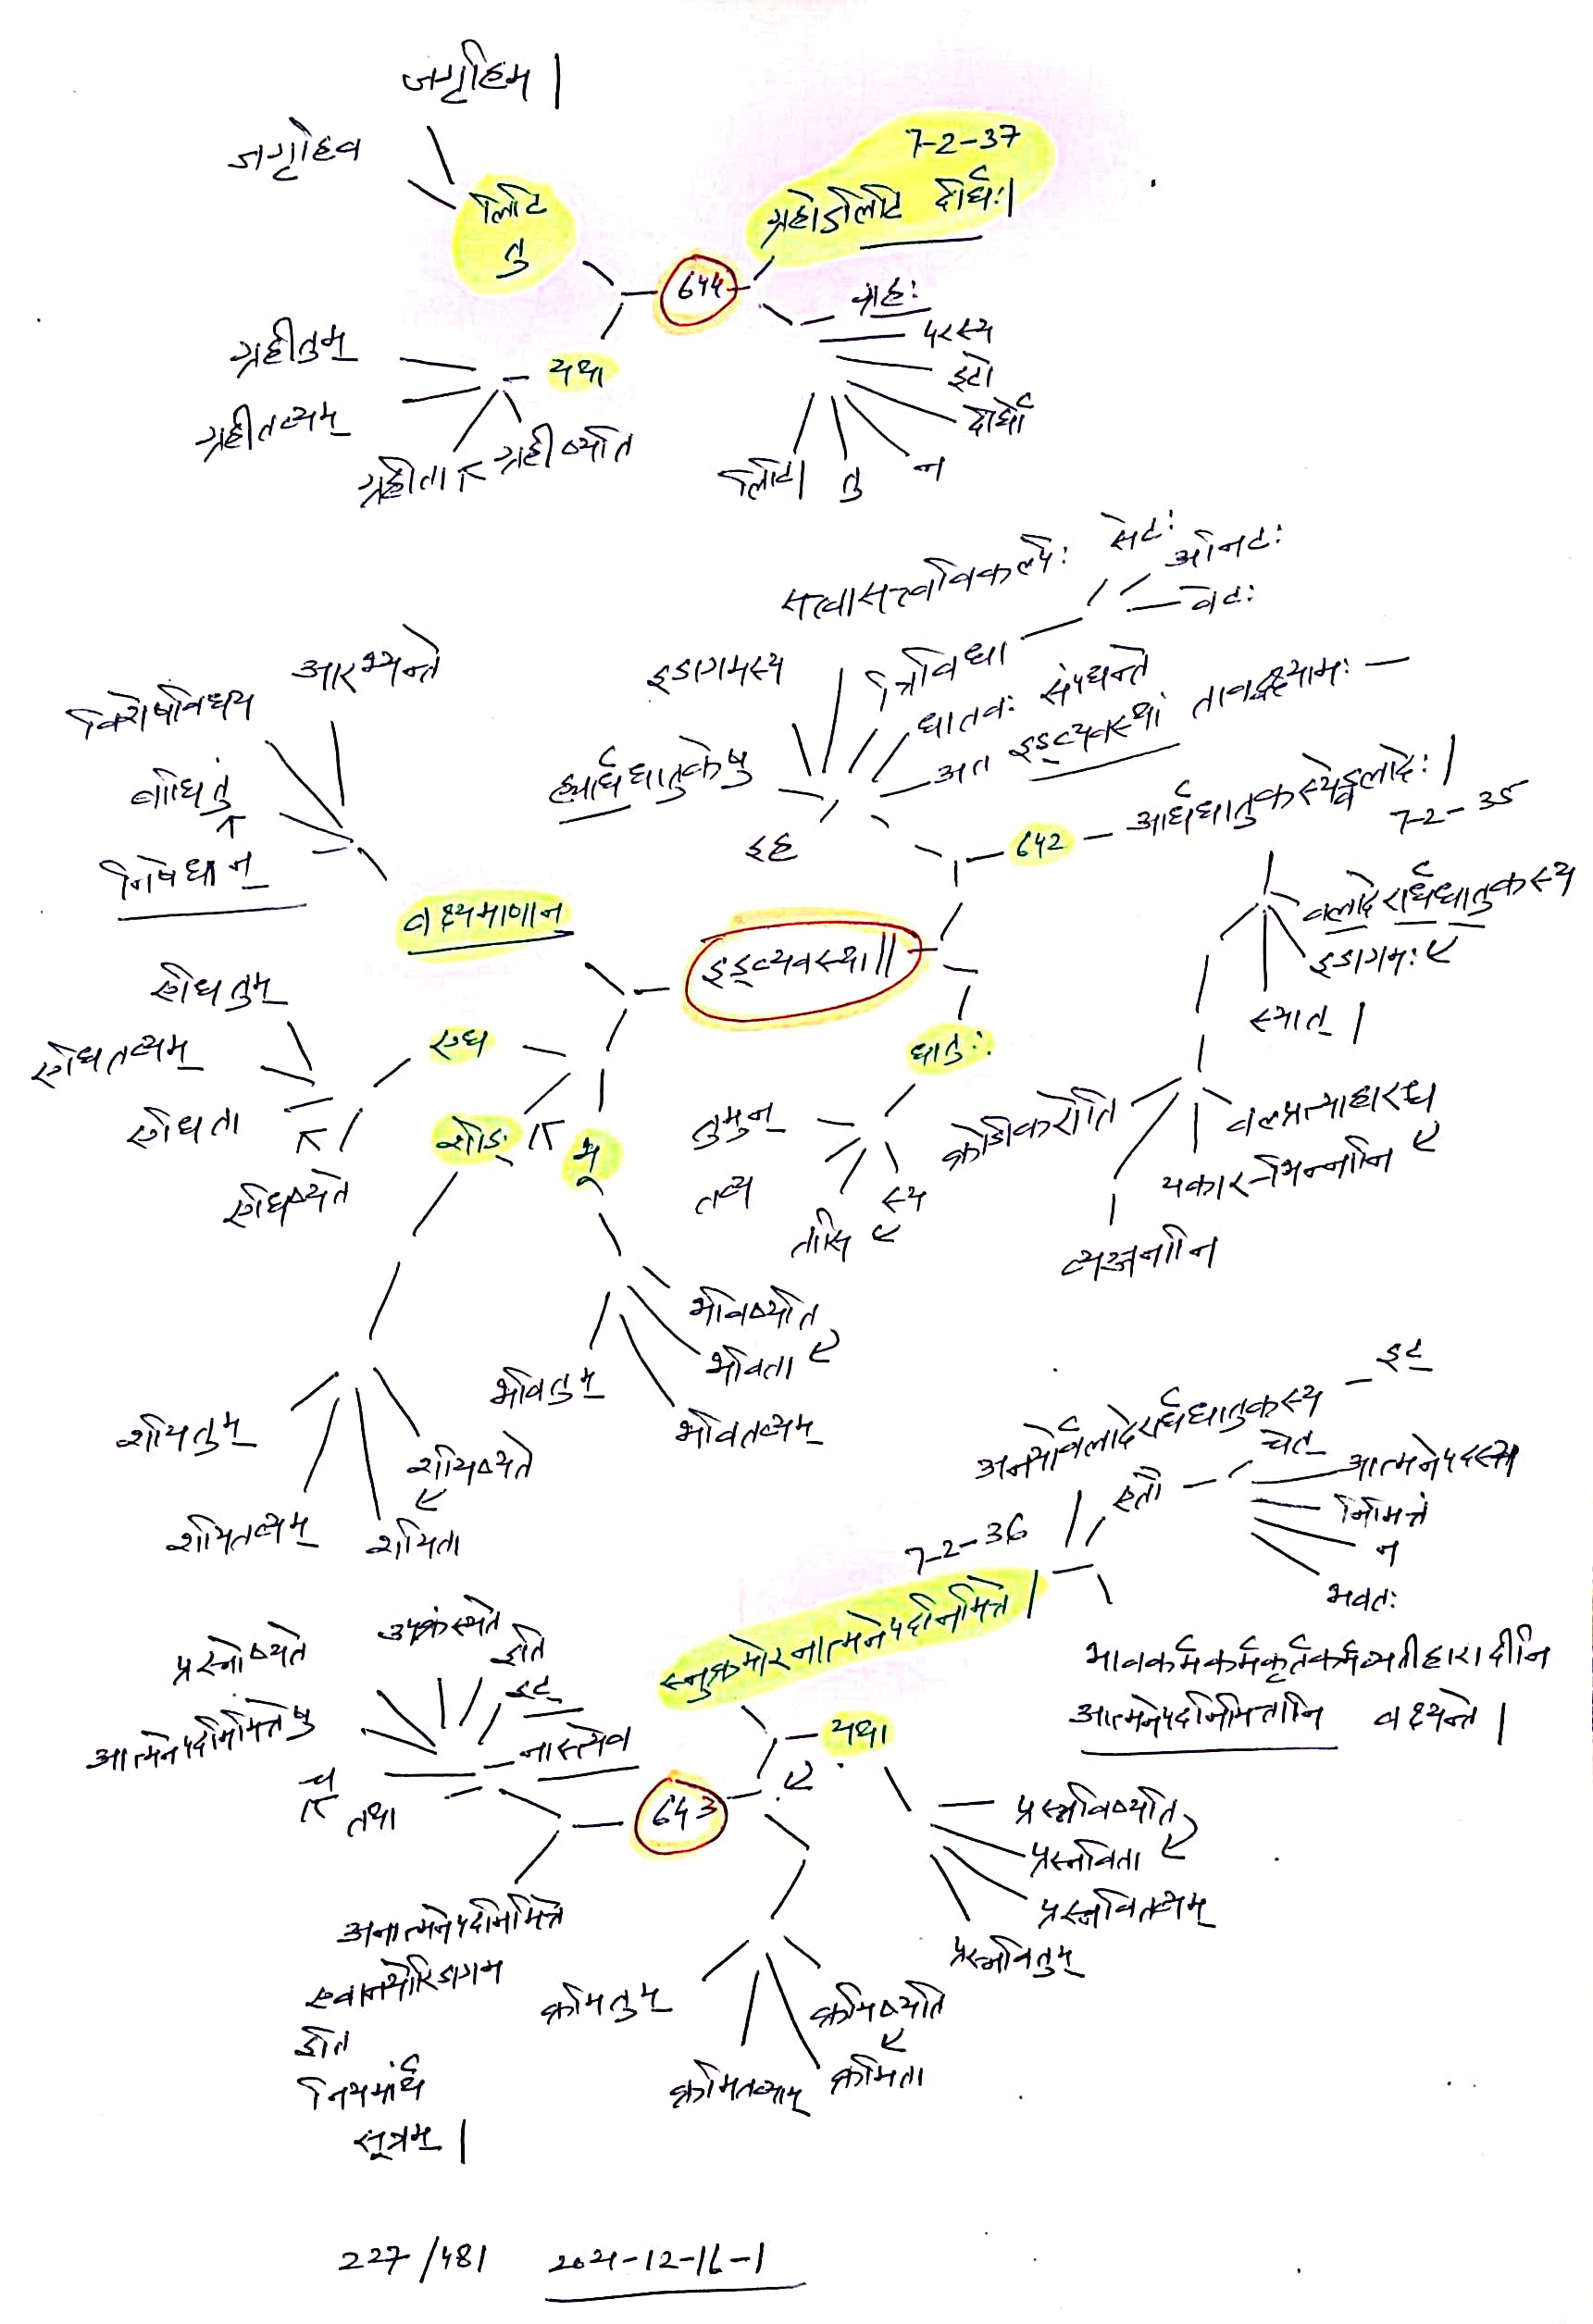 जगृहिम |
जगृहिव
लिटि
तु
7-2-37
ग्रहोऽलिटि दीर्घः |
644
ग्रहः
परस्य
इटो
दीर्घो
न
तु
लिटि |
यथा
ग्रहीतुम्
ग्रहीतव्यम्
ग्रहीता
ग्रहीष्यति
सत्वासत्त्वविकल्पैः
सेटः
अनिटः
वेटः
इडागमस्य
त्रिविधा
धातवः संपद्यन्ते
अत इड्व्यवस्थां तावद्वक्ष्यामः —
ह्यार्धधातुकेषु
इह
642
आर्धधातुकस्येड्वलादेः |
7-2-35
वलादेरार्धधातुकस्य
इडागमः
स्यात् |
वल्प्रत्याहारश्च
यकार-भिन्नानि
व्यञ्जनानि
क्रोडीकरोति
आरभ्यन्ते
विशेषविधय
बाधितुं
निषेधान्
वक्ष्यमाणान्
इड्व्यवस्था ||
धातुः
तुमुन्
तव्य
तासि
स्य
एध
एधितुम्
एधितव्यम्
एधिता
एधिष्यते
शीङ्
शयितुम्
शयितव्यम्
शयिता
शयिष्यते
भू
भविष्यति
भविता
भवितव्यम्
भवितुम्
7-2-36
स्नुक्रमोरनात्मनेपदनिमित्ते |
अनयोर्वलादेरार्धधातुकस्य
इट्
एतौ
चेत्
आत्मनेपदस्य
निमित्तं
न
भवतः
भावकर्मकर्मकर्तृकर्मव्यतीहारादीनि
आत्मनेपदनिमित्तानि वक्ष्यन्ते |
यथा
643
प्रस्नविष्यति
प्रस्नविता
प्रस्नवितव्यम्
प्रस्नवितुम्
क्रमिष्यति
क्रमिता
क्रमितव्यम्
क्रमितुम्
प्रस्नोष्यते
उपक्रंस्यते
इति
इट्
नास्त्येव
आत्मनेपदनिमित्तेषु
च
तथा
अनात्मनेपदनिमित्ते
एवानयोरिडागम
इति
नियमार्थं
सूत्रम् |
227/481 2021-12-16-1